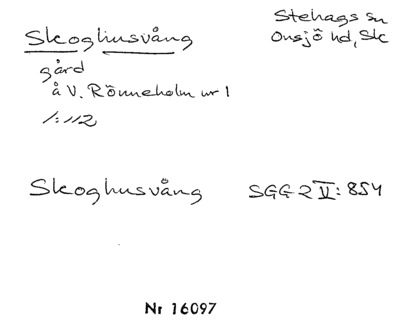 Skoghusvång
Stehags sn
Onsjö hd, Sk
gård
å V. Rönneholm nr 1
1:112
Skoghusvång
SGG 2 V: 854
Nr 16097